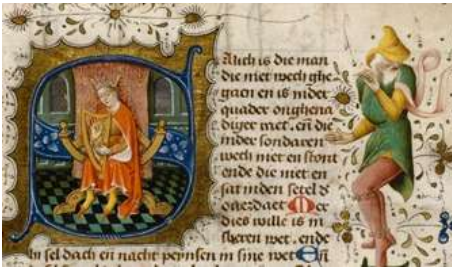 Alich is die man
die niet wech ghe
gaen en is inder
quader onghena
diger raet . en die
inder sondaren
wech niet en stont
ende die niet en
sat inden setel d
quaerdaet Mer
dies wille is in
sheren wet . ende
in sel dach en nacht peynsen in sine wet En